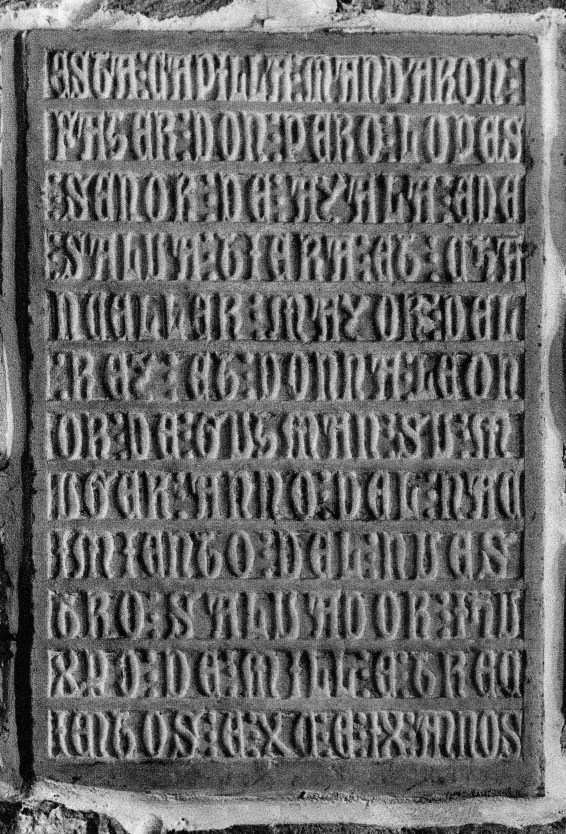 ESTA:CAPILLA:MANDARON:
FAZER:DON:PERO:LOPES
SENOR:DE:AYALA:EDE
SALUA:TIERA:ET:CHA
NCELLER:MAYOR:DEL
REY:ET:DONNA:LEON
OR:DE:GUZMAN:SU:M
UGER:ANNO:DEL:NAC
IMIENTO:DEL:NUES
TRO:SALUADOR:IHU
XPO:DE:MILL:E:TREC
IENTOS:E:XC:E:IX:ANNOS